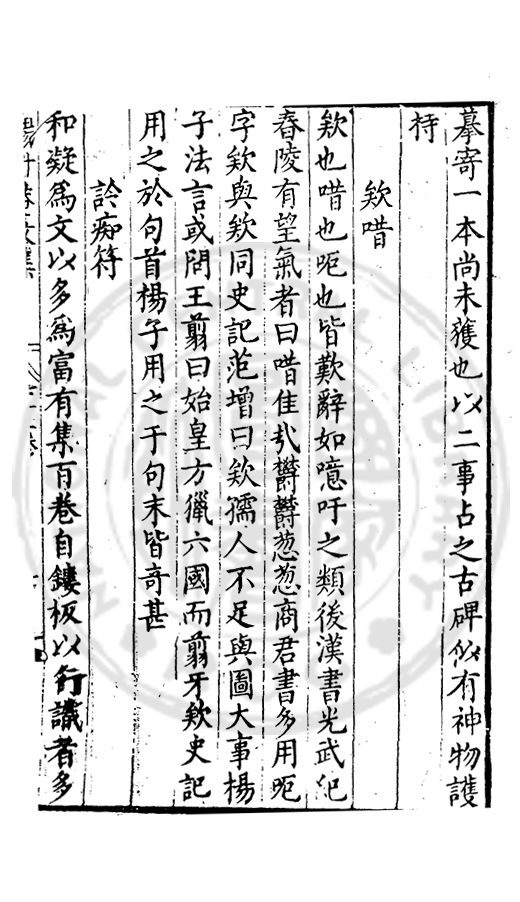 摹寄一本尚未獲也以二事占之古碑似有神物護
持
欸唶
欸也唶也呃也皆歎辭如噫吁之類後漢書光武紀
舂陵有望氣者曰唶佳㢤欝欝葱葱商君書多用呃
字欸與欸同史記范增曰欸孺人不足與圖大事楊
子法言或問王翦曰始皇方獵六國而翦牙欸史記
用之於句首楊子用之于句末皆奇甚
詅痴符
和凝為文以多為富有集百卷自鏤板以行識者多